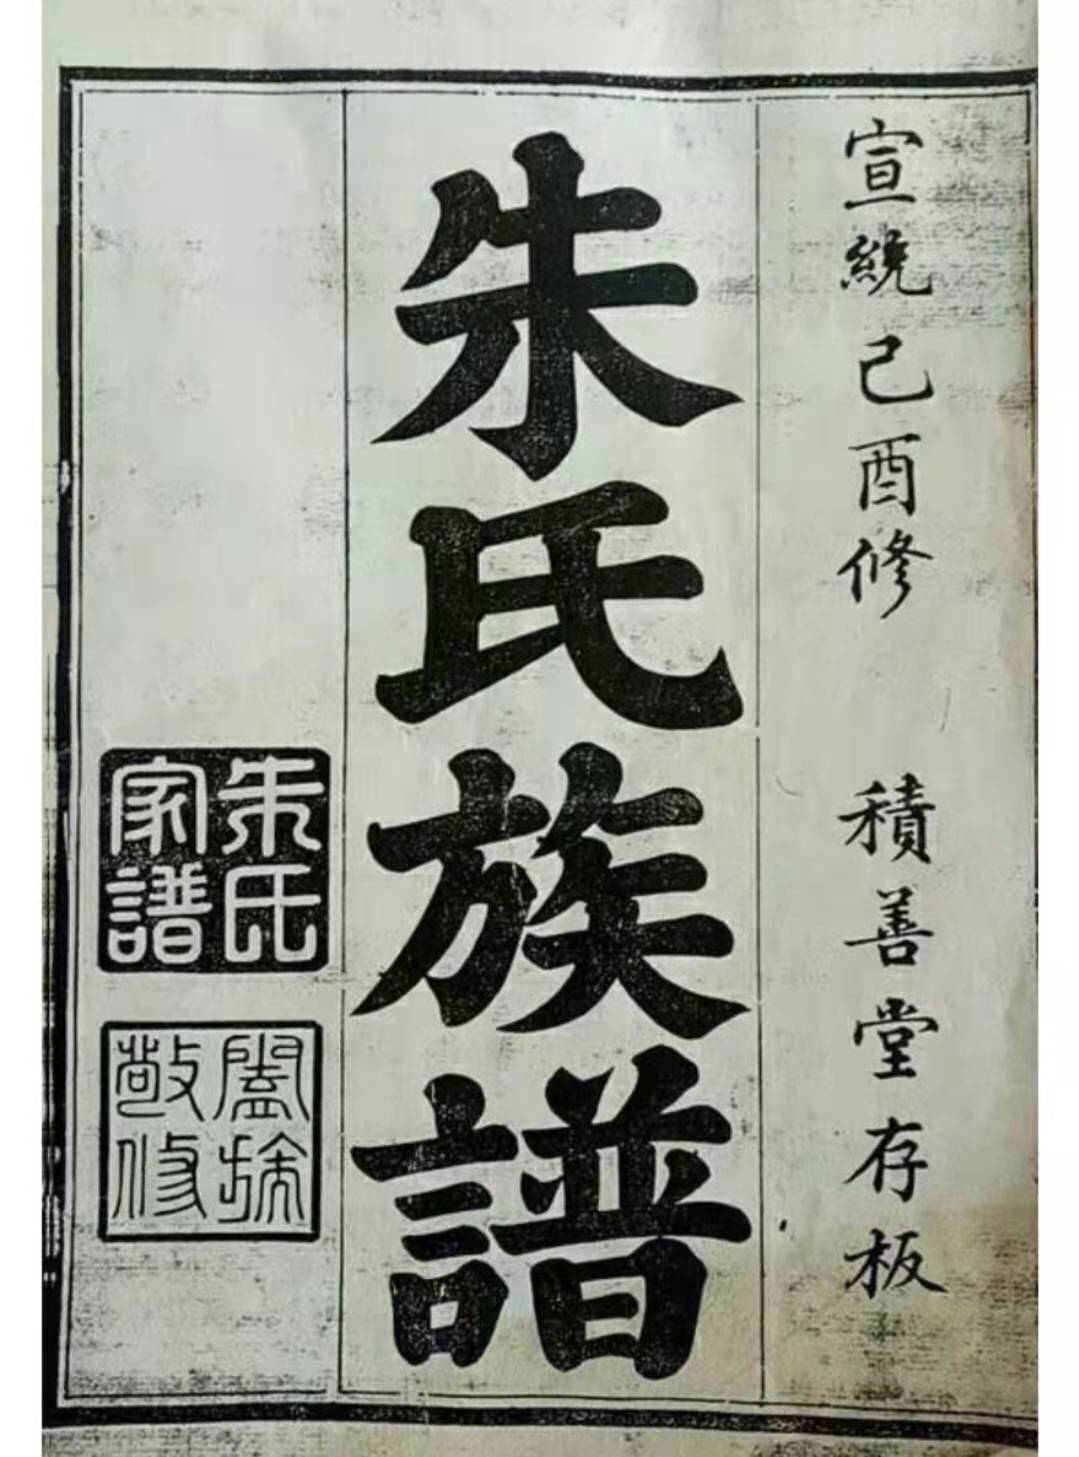 宣統己酉修 積善堂存板
朱氏族譜
朱氏
家譜
闔族
敬修